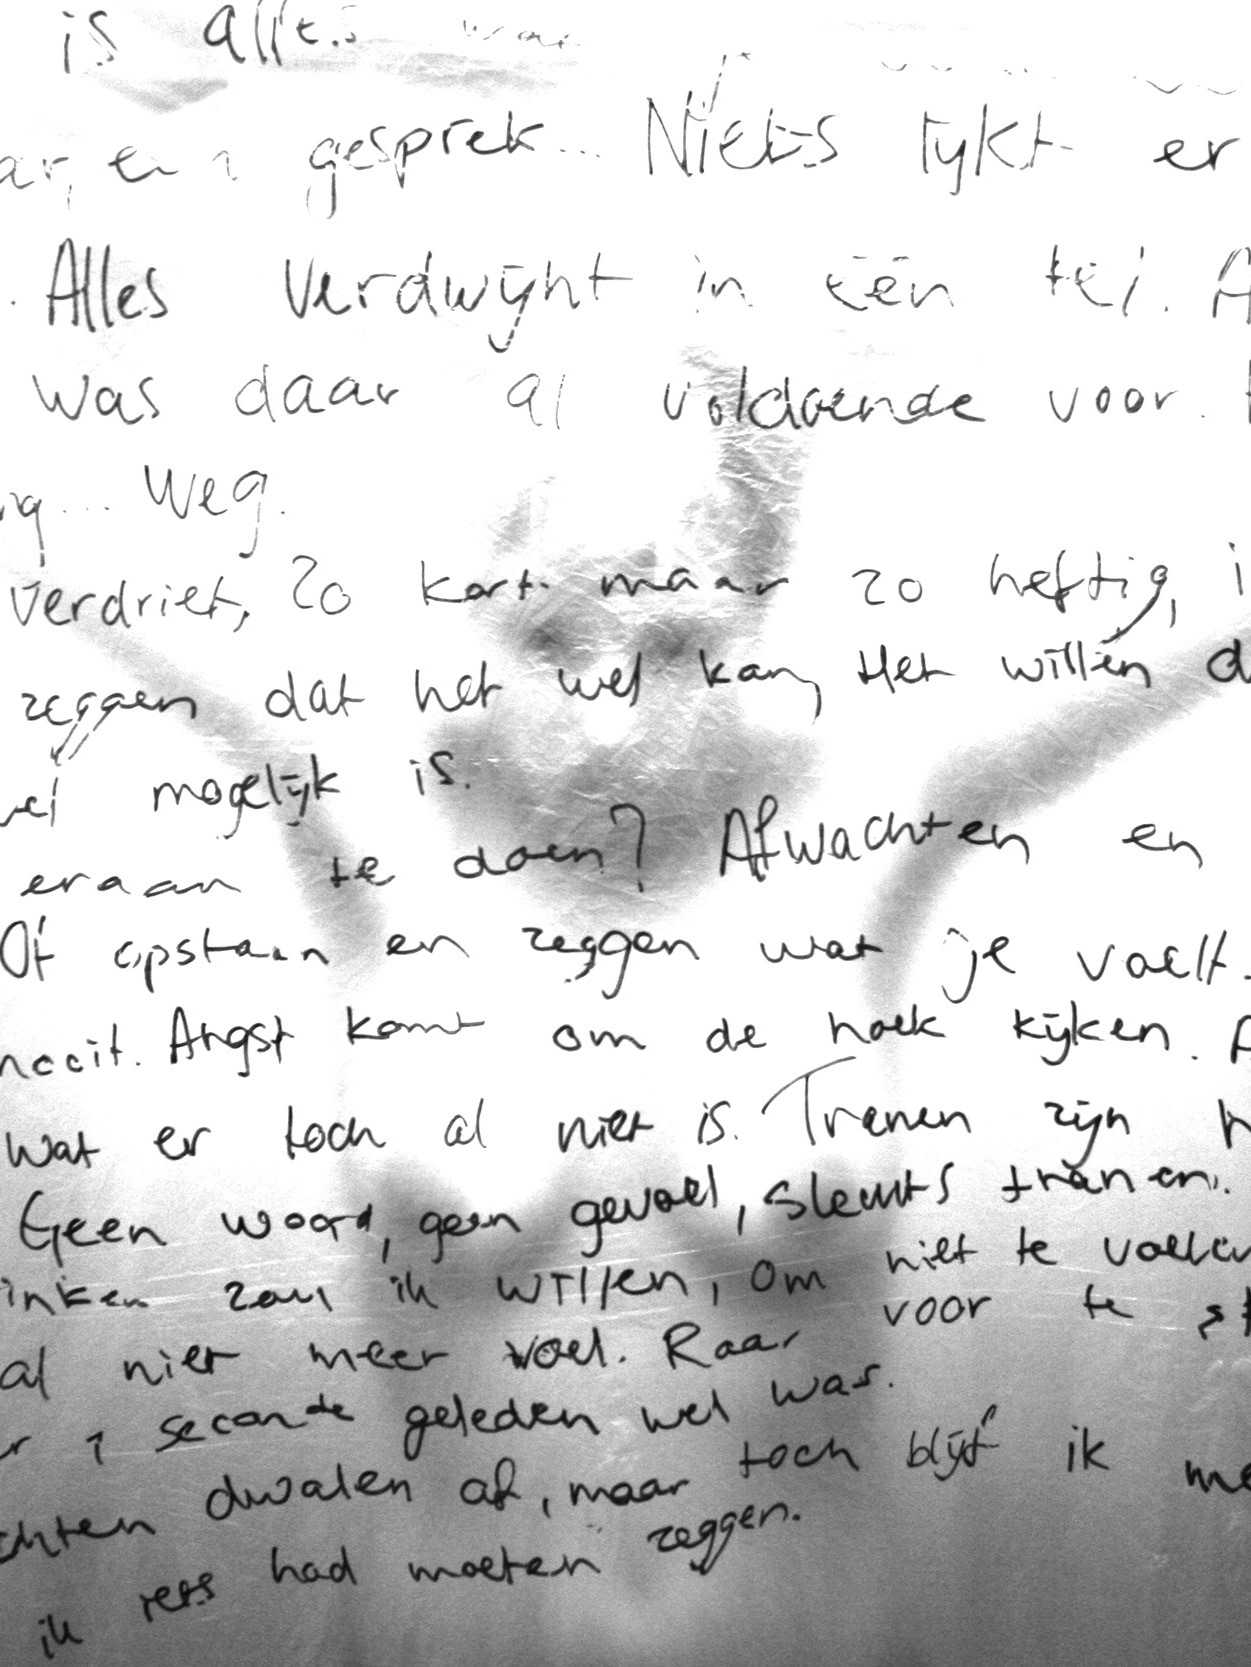 is alles
gesprek... Niets lijkt er
Alles verdwijnt in één tel. A
was daar al voldoende voor.
... Weg.
verdriet, zo kort maar zo heftig, i
zeggen dat het wel kan, Het willen d
mogelijk is.
eraan te doen? Afwachten en
Of opstaan en zeggen wat je voelt.
nooit. Angst komt om de hoek kijken. A
wat er toch al niet is. Tranen zijn h
Geen woord, geen gevoel, slechts tranen.
inken zou ik willen, om niet te voelen
al niet meer voel. Raar voor te st
r 1 seconde geleden wel was.
chten dwalen af, maar toch blijf ik me
ik iets had moeten zeggen.